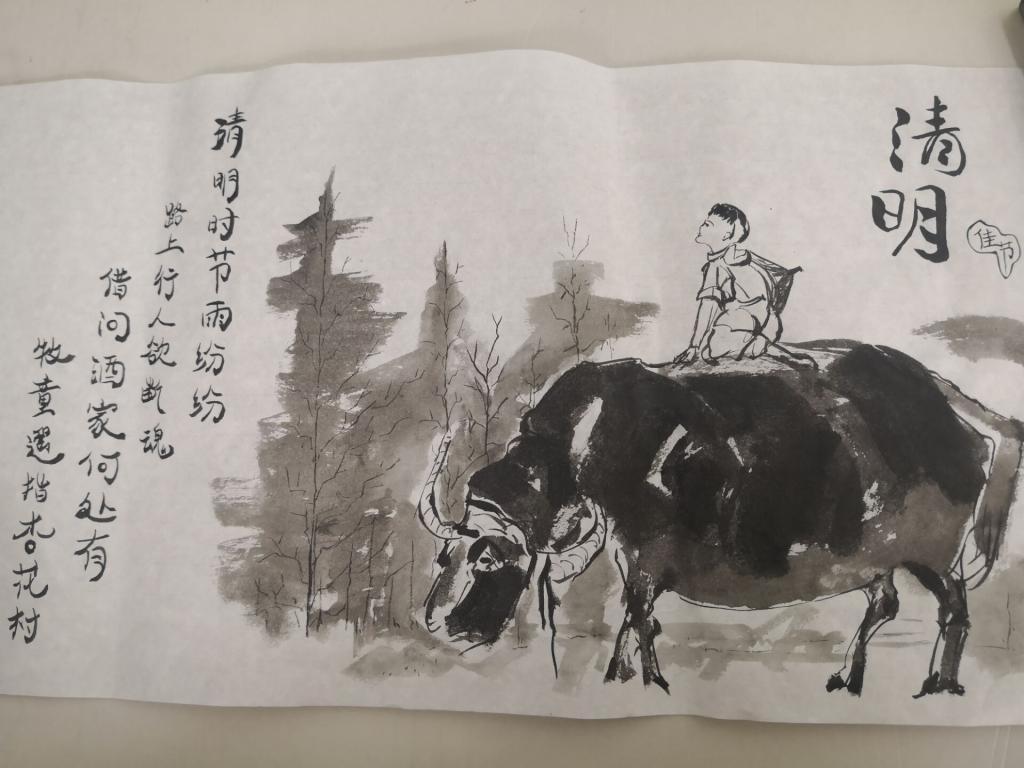 清明
佳节
清明时节雨纷纷
路上行人欲断魂
借问酒家何处有
牧童遥指杏花村